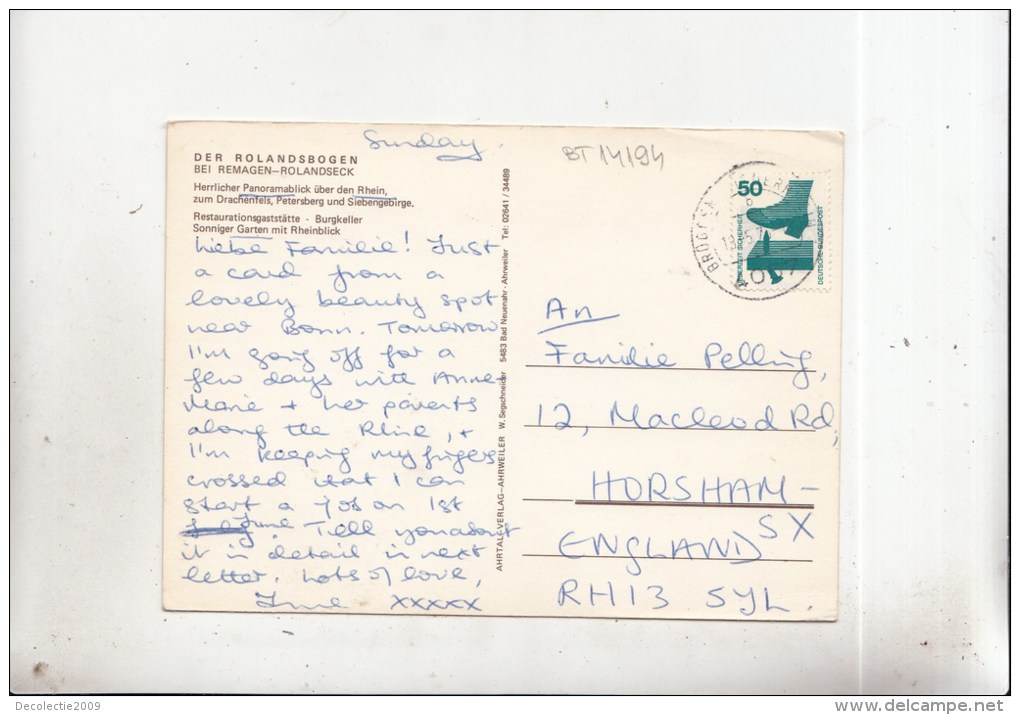 Sunday.
BT 14194
DER ROLANDSBOGEN
BEI REMAGEN-ROLANDSECK
Herrlicher Panoramablick über den Rhein,
zum Drachenfels, Petersberg und Siebengebirge.
Restaurationsgaststätte - Burgkeller
Sonniger Garten mit Rheinblick
Liebe Familie! Just
a card from a
lovely beauty spot
near Bonn. Tomorrow
I'm going off for a
few days with Anne-
Marie + her parents
along the Rhine, +
I'm keeping my fingers
crossed that I can
start a job on 1st
June. Tell you about
it in detail in next
letter. Lots of love,
xxxxx
AHRTAL-VERLAG-AHRWEILER W. Segschneider 5483 Bad Neuenahr-Ahrweiler Tel: 02641 / 34489
50
DEUTSCHE BUNDESPOST
An
Familie Pelling,
12, Macleod Rd,
HORSHAM-
SX
ENGLAND
RH13 5JL.
Decolectie2009
www.delcampe.net